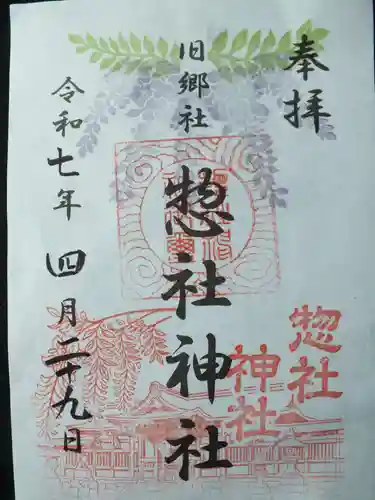 奉拝
旧郷社
惣社神社
惣社
神社
令和七年四月二十九日